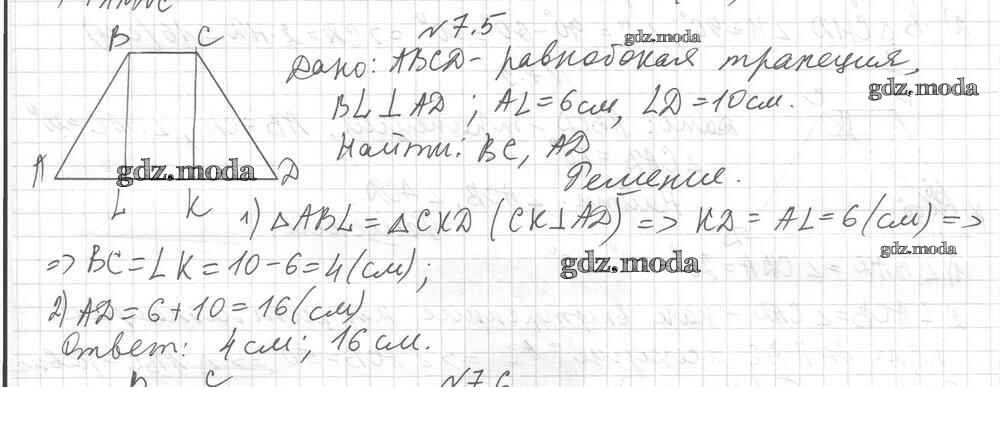 N7.5
B C
Дано: ABCD - равнобокая трапеция,
BL ⊥ AD ; AL = 6 см, LD = 10 см.
Найти: BC, AD
A D
L K
Решение.
1) △ABL = △CKD (CK ⊥ AD) => KD = AL = 6 (см) =>
=> BC = LK = 10 - 6 = 4 (см);
2) AD = 6 + 10 = 16 (см)
Ответ: 4 см; 16 см.
C
N7.6
gdz.moda
gdz.moda
gdz.moda
gdz.moda
gdz.moda